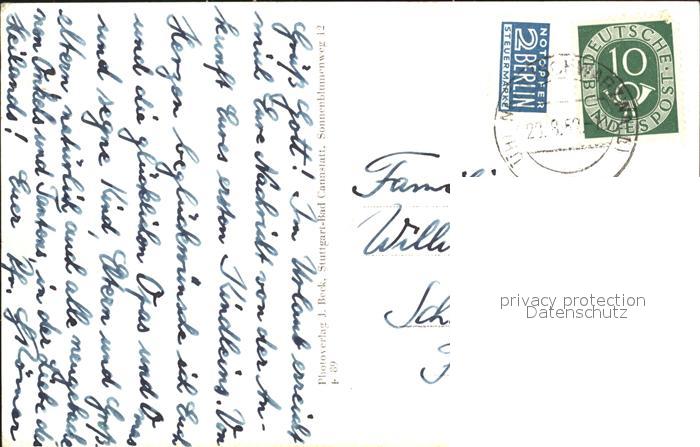 Grüß Gott! Im Urlaub erreicht
mich Eure Nachricht von der An-
kunft Eures ersten Kindleins. Von
Herzen beglückwünsche ich Euch
und die glücklichen Opas und Omas
und segne Kind, Eltern und Groß-
eltern natürlich und alle
Onkels und Tantens, in der Liebe des
Heilands! Euer
Photoverlag J. Beck, Stuttgart-Bad Cannstatt, Sonnenblumenweg 12
F 89
NOTOPFER
2 BERLIN
STEUERMARKE
DEUTSCHE
10
BUNDESPOST
Famil
Will
Sch
privacy protection
Datenschutz